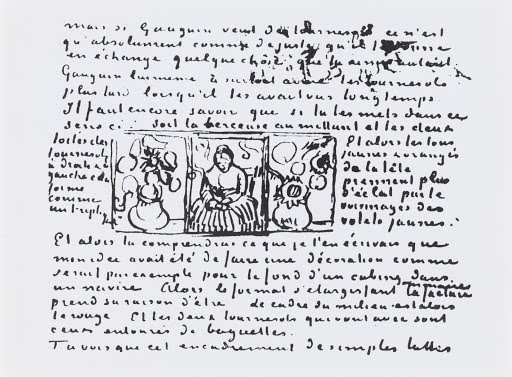 mais si Gauguin veut des tournesols ce n'est
qu'absolument comme de juste qu'il te donne
en échange quelque chose que tu aimes autant
Gauguin lui meme a surtout aimé les tournesols
plus tard lorsqu'il les avait vus longtemps.
Il faut encore savoir que si tu les mets dans ce
sens ci : soit la berceuse au millieu et les deux
toiles des
tournesols
à droite & à
gauche cela
forme
comme
un
Et alors les tons
jaunes & orangés
de la tête
prennent plus
d'éclat par le
voisinages des
volets jaunes.
Et alors tu comprendras ce que je t'en écrivais que
mon idée avait été de faire une décoration comme
serait par exemple pour le fond d'un cabine dans
un navire Alors le format s'élargissant la facture sommaire
prend sa raison d'être le cadre du milieu est alors
le rouge Et les deux tournesols qui vont avec sont
ceux entourés de baguettes.
Tu vois que cet encadrement de simples lattes